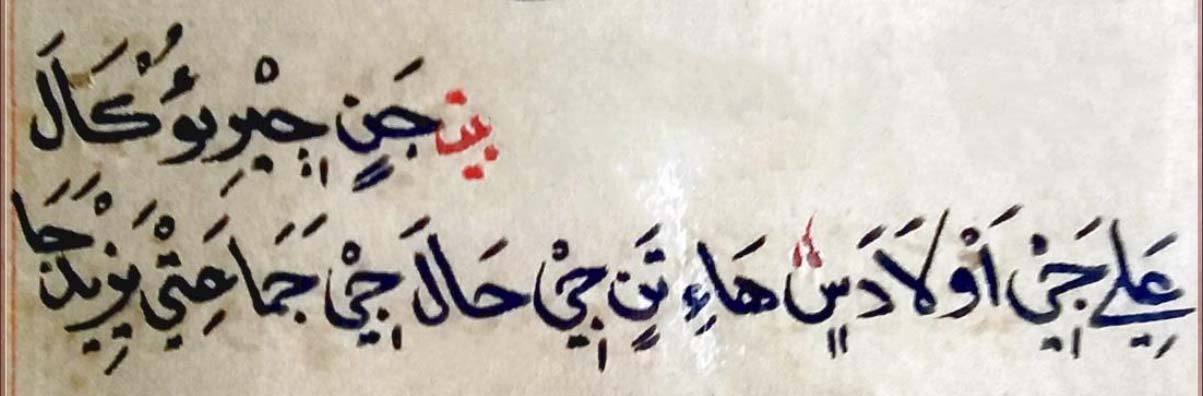 بيت جَنٍ جِيْرِ يؤُ كَالَ
عَلِي جَيْ اَوْلَادَ سٍ هَاءِ تَنٍ جِيْ حَالَ جِيْ جَمَاعَتِيْ يَزِيْدَ جَا